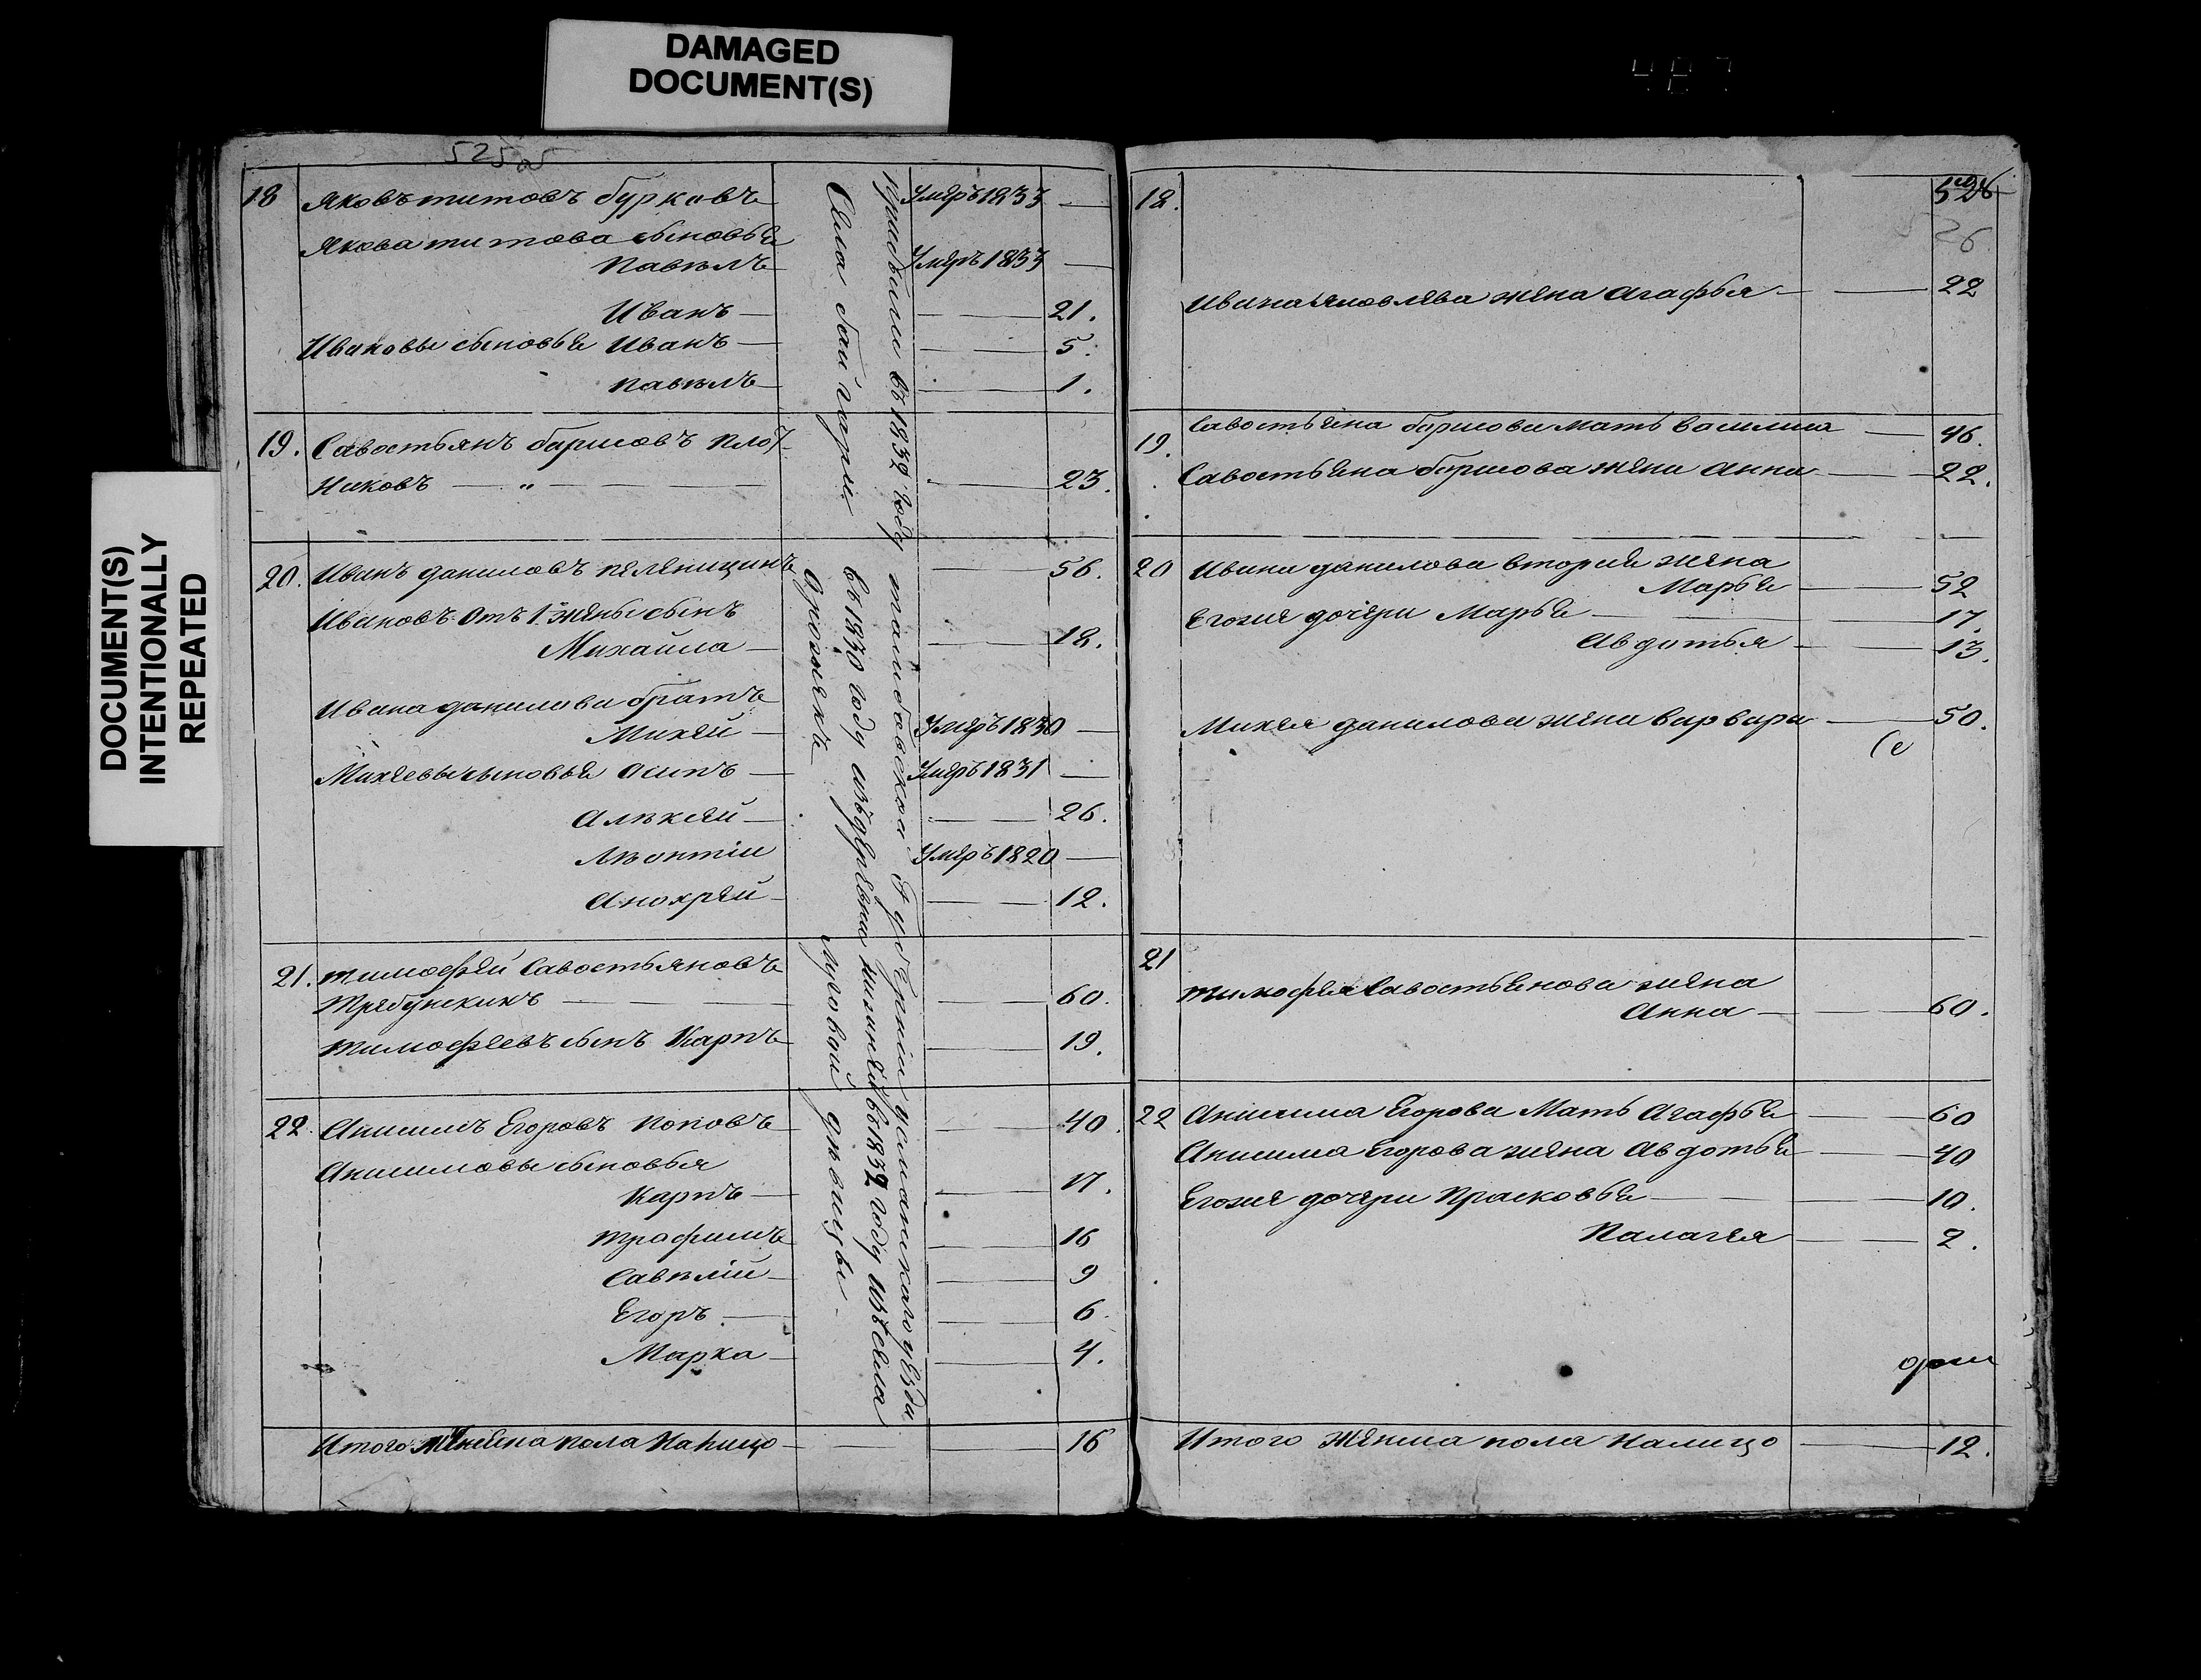 DAMAGED
DOCUMENT(S)
DOCUMENT(S)
INTENTIONALLY
REPEATED
525 об
18 Яковъ титовъ бурковъ Умеръ 1833 —
Якова титова сыновья
Павѣлъ Умеръ 1833 —
Иванъ — 21.
Ивановы сыновья Иванъ — 5.
павѣлъ — 1.
19. Савостьянъ барисовъ плот-
никовъ — „ — 23.
20. Иванъ даниловъ пеленицинъ — 56.
Ивановъ отъ 1й жены сынъ
Михайла — 18.
Ивана данилова братъ
Михей — Умеръ 1830 —
Михеевы сыновья осипъ — Умеръ 1831 —
алѣксей — 26.
Лѣонтіи Умеръ 1820 —
анохрей — 12.
21. тимофей Савостьяновъ
трябунскинъ — 60.
тимофеевъ сынъ Карпъ — 19.
22. Анисимъ Егоровъ поповъ — 40.
Анисимовы сыновья
Карпъ — 17.
трафимъ — 16
Савѣлій — 9
Егоръ — 6
Марка — 4.
Итого пола На лицо — 16
прибыли въ 1832 году танбавскои Губерніи усманскаго уѣзда
въ 1830 году изъ деревни въ 1832 году изъ села
Села байгоры
526
526
18.
Ивана яковлева жена агафья — 22
19. Савостьяна барисова мать василиса — 46.
Савостьяна барисова жена анна — 22.
20 Ивана данилова вторая жена
Марья — 52
Егожа дочери Марья — 17.
авдотья — 13.
Михея данилова жена варвара — 50.
21
тимофея Савостьянова жена
анна — 60.
22 Анисима Егорова Мать агафья — 60
Анисима Егорова жена авдотья — 40
Егожа дочери прасковья — 10.
палагея — 2.
Итого женска пола налицо — 12.